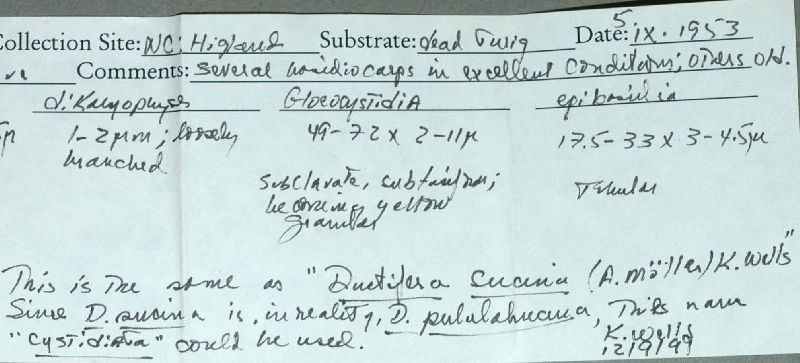 Collection Site: NC: Highland Substrate: dead Twig Date: 5 ix. 1953
Comments: Several basidiocarps in excellent Conditions; others old.
dikaryophyses Gloeocystidia epibasidia
1-2 µm; loosely 49-72 x 2-11µ 17.5-33 x 3-4.5µ
branched
subclavate, subfusiform; Tubular
becoming yellow
granular
This is the same as "Ductifera sucina (A. Möller) K. Wells"
Since D. sucina is, in reality, D. pululahuana, This name
"cystidiata" could be used. K. Wells
12/9/99